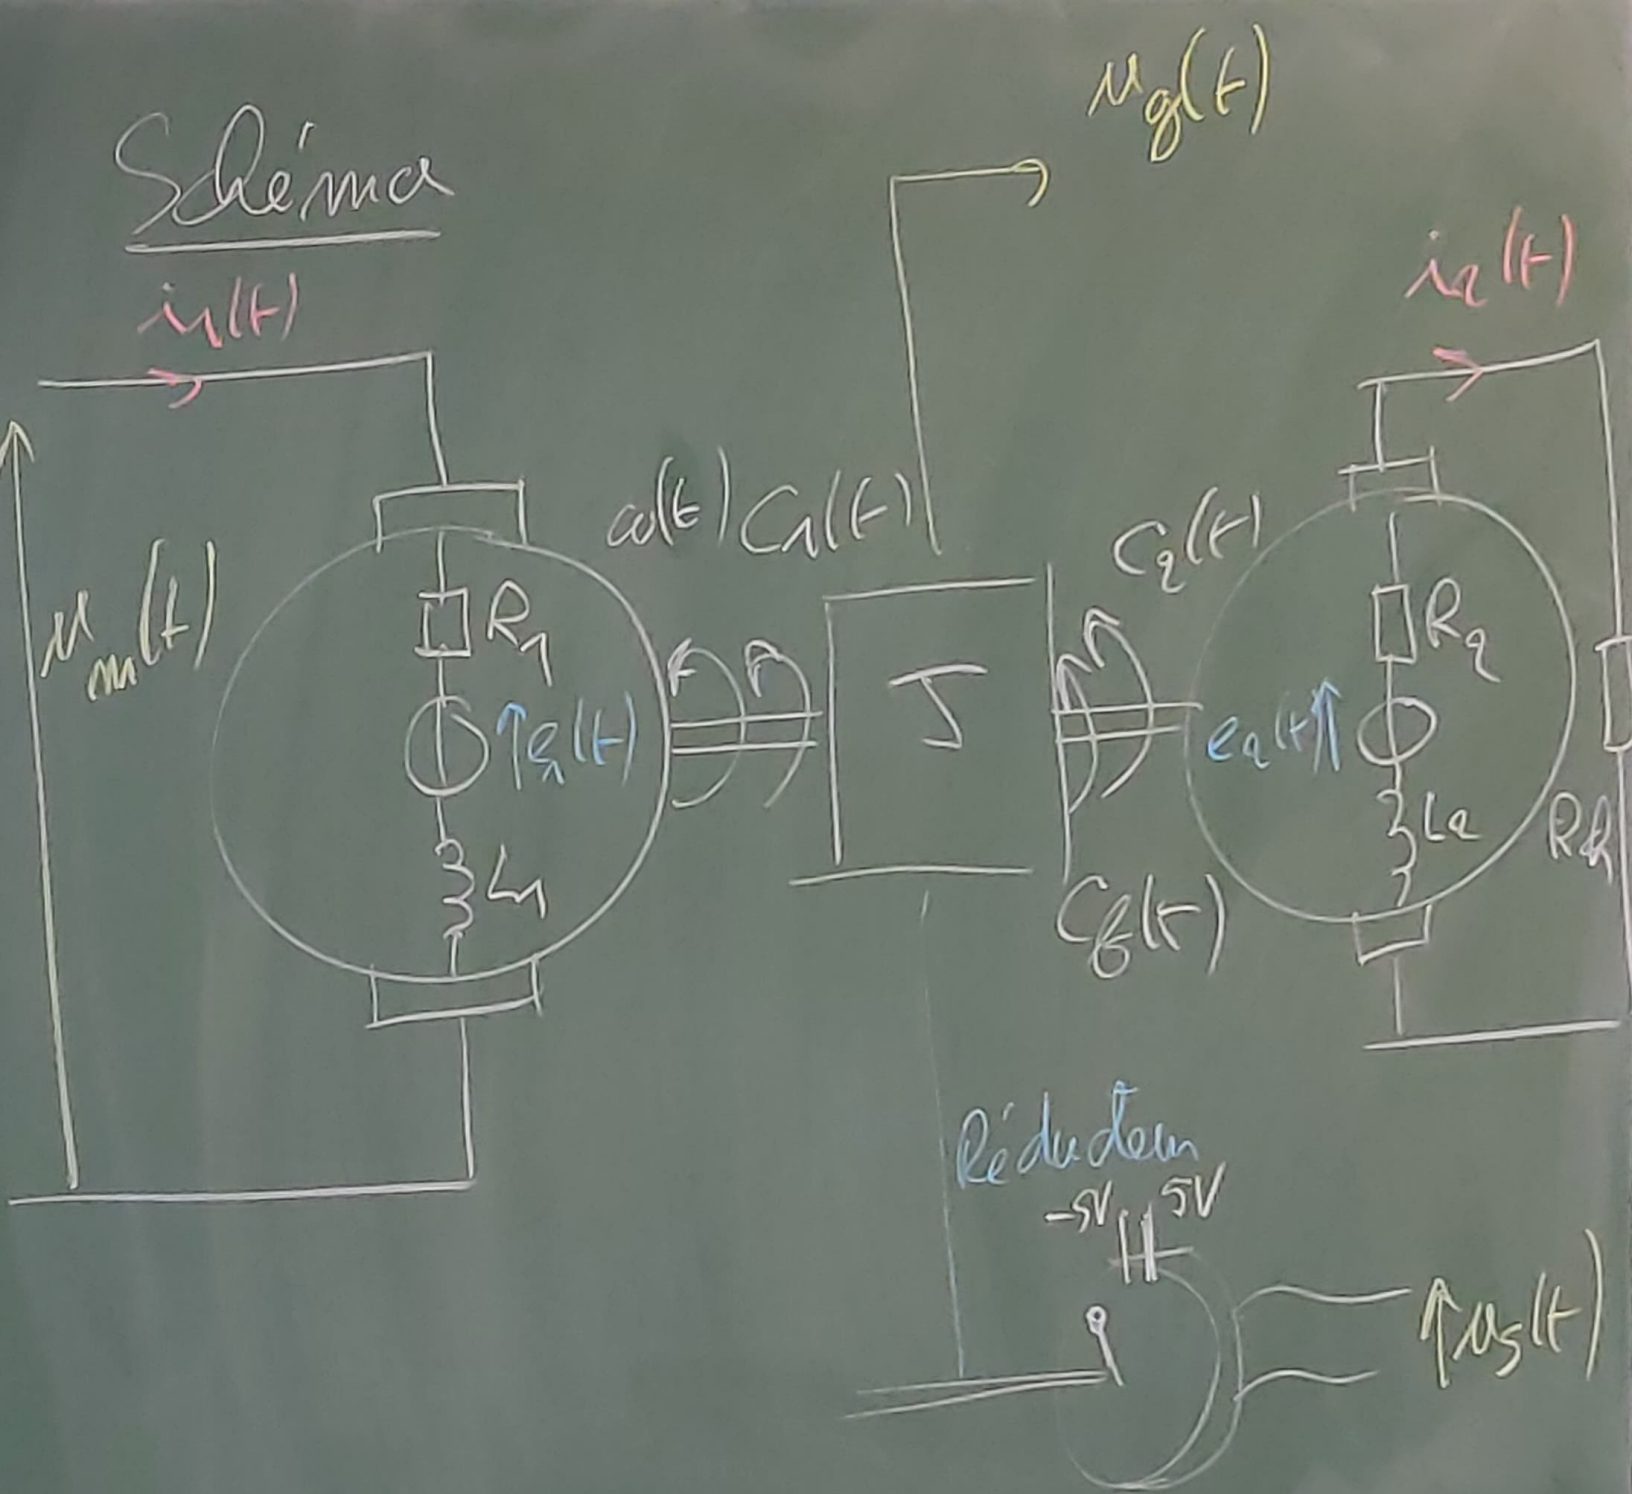 Schéma
u_g(t)
i₁(t)
i₂(t)
u_m(t)
ω(t) C₁(t)
C₂(t)
R₁
e₁(t)
L₁
J
R₂
e₂(t)
L₂
Rh
C_f(t)
Réducteur
-5V 5V
u_s(t)